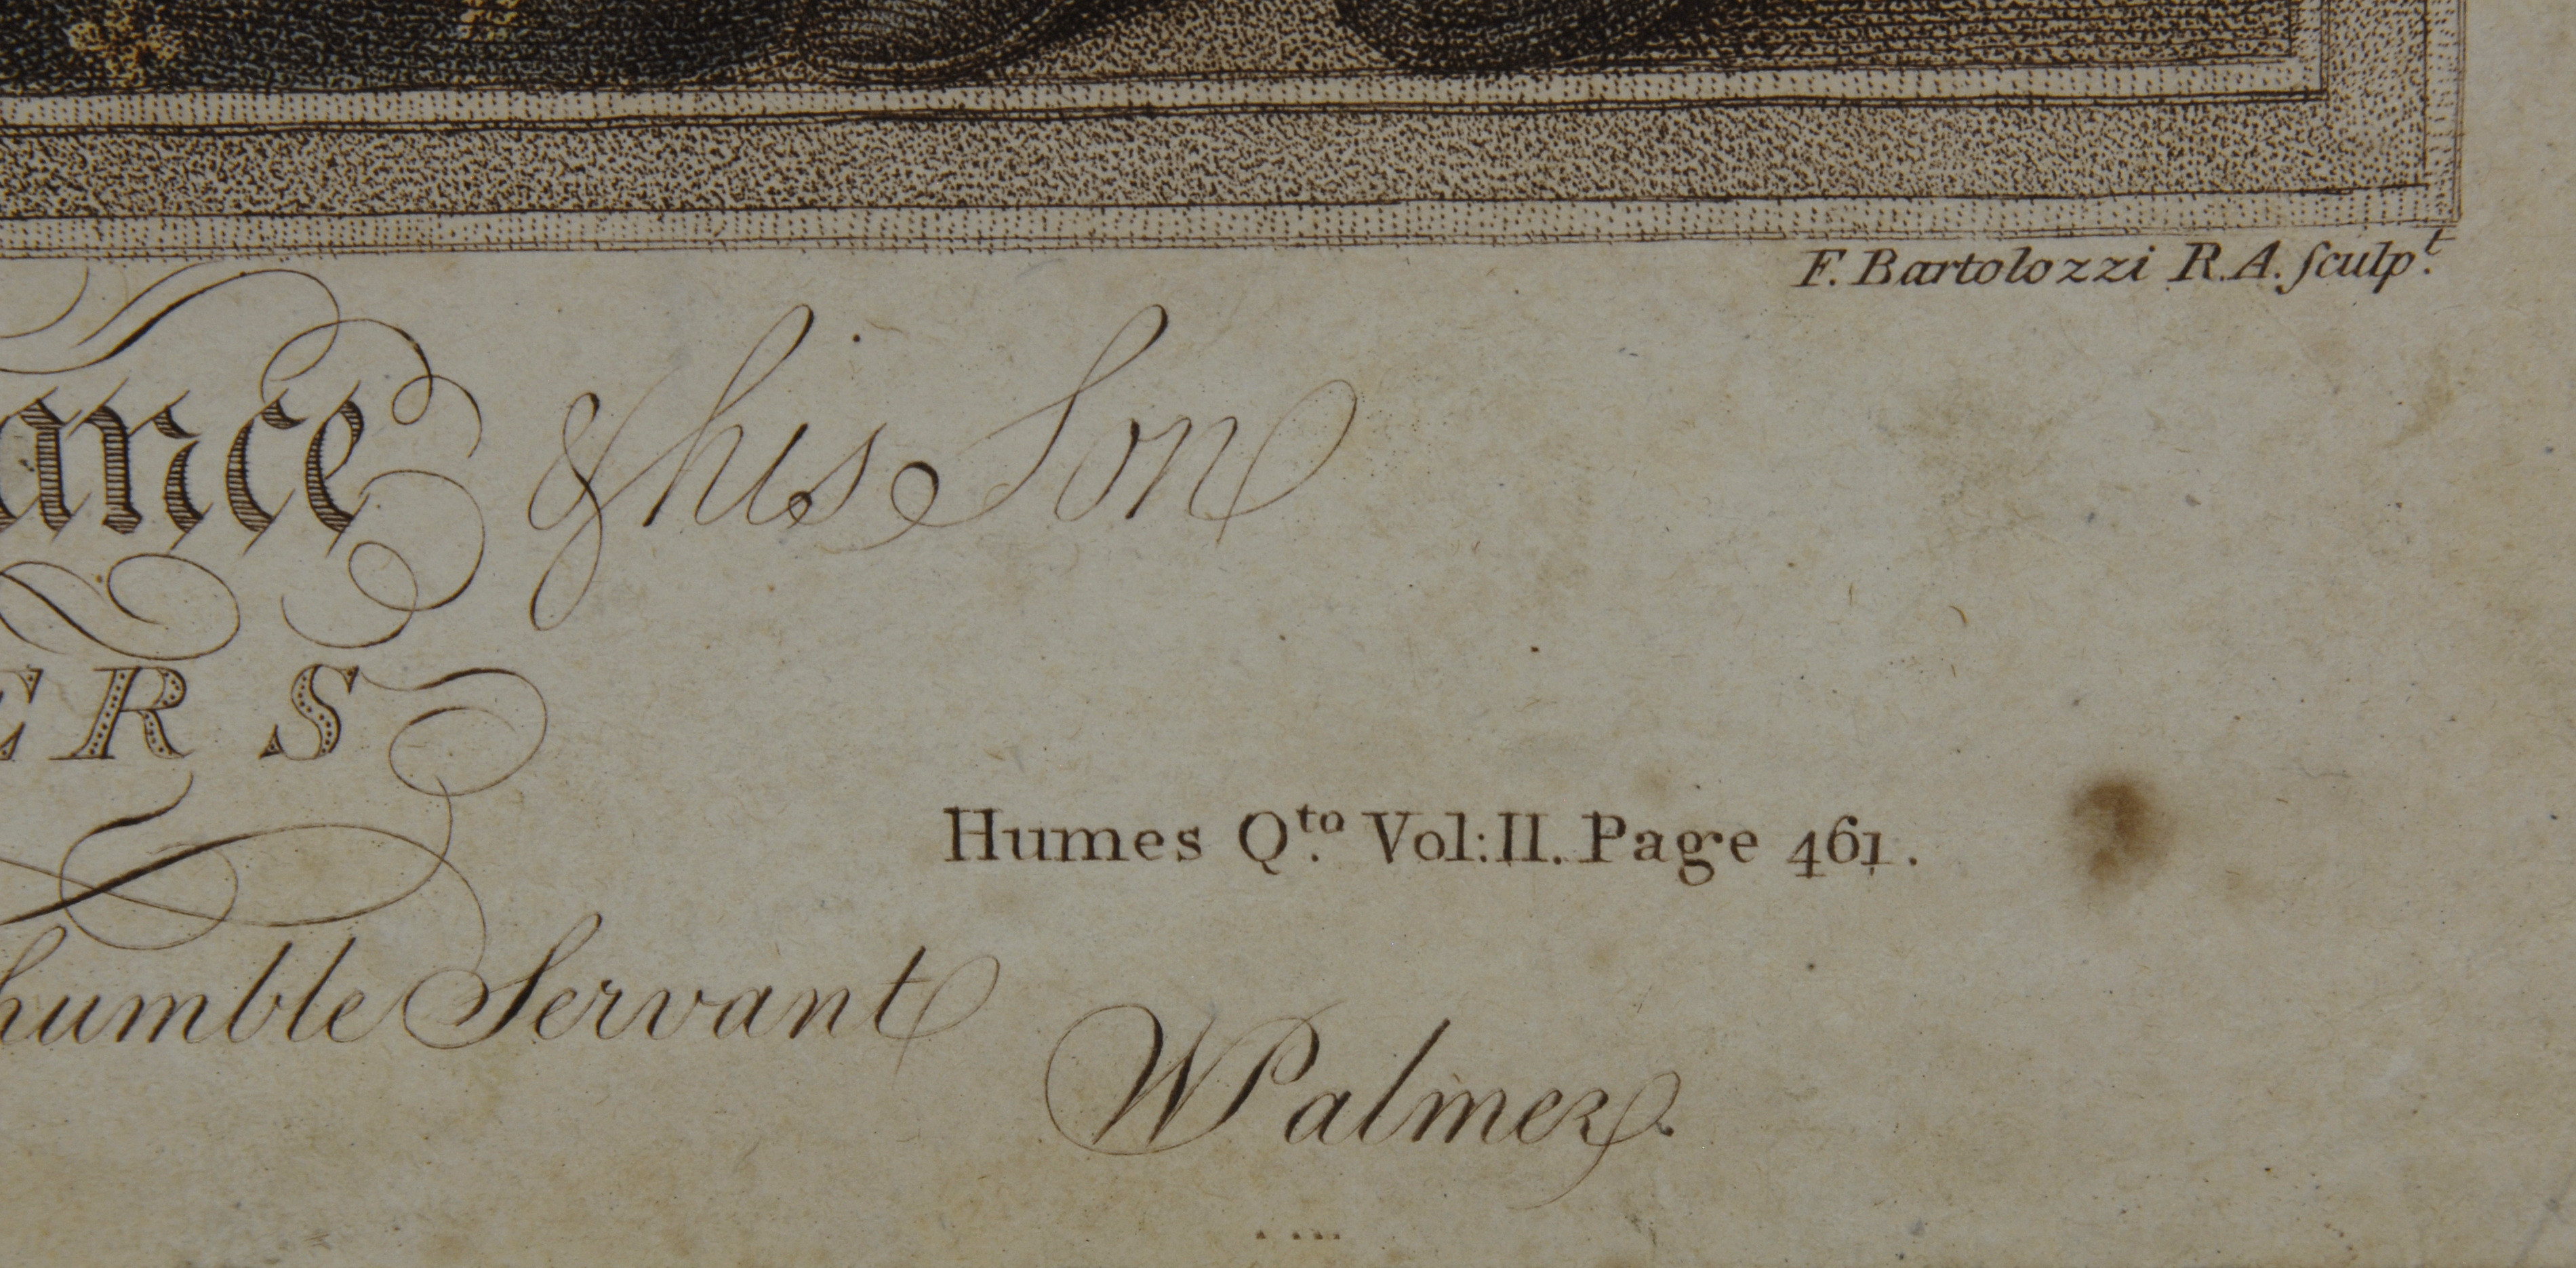 F. Bartolozzi R.A. ſculpᵗ.
ance & his Son
ERS
Humes Q.ᵗᵒ Vol: II. Page 461.
humble Servant
W Palmer.